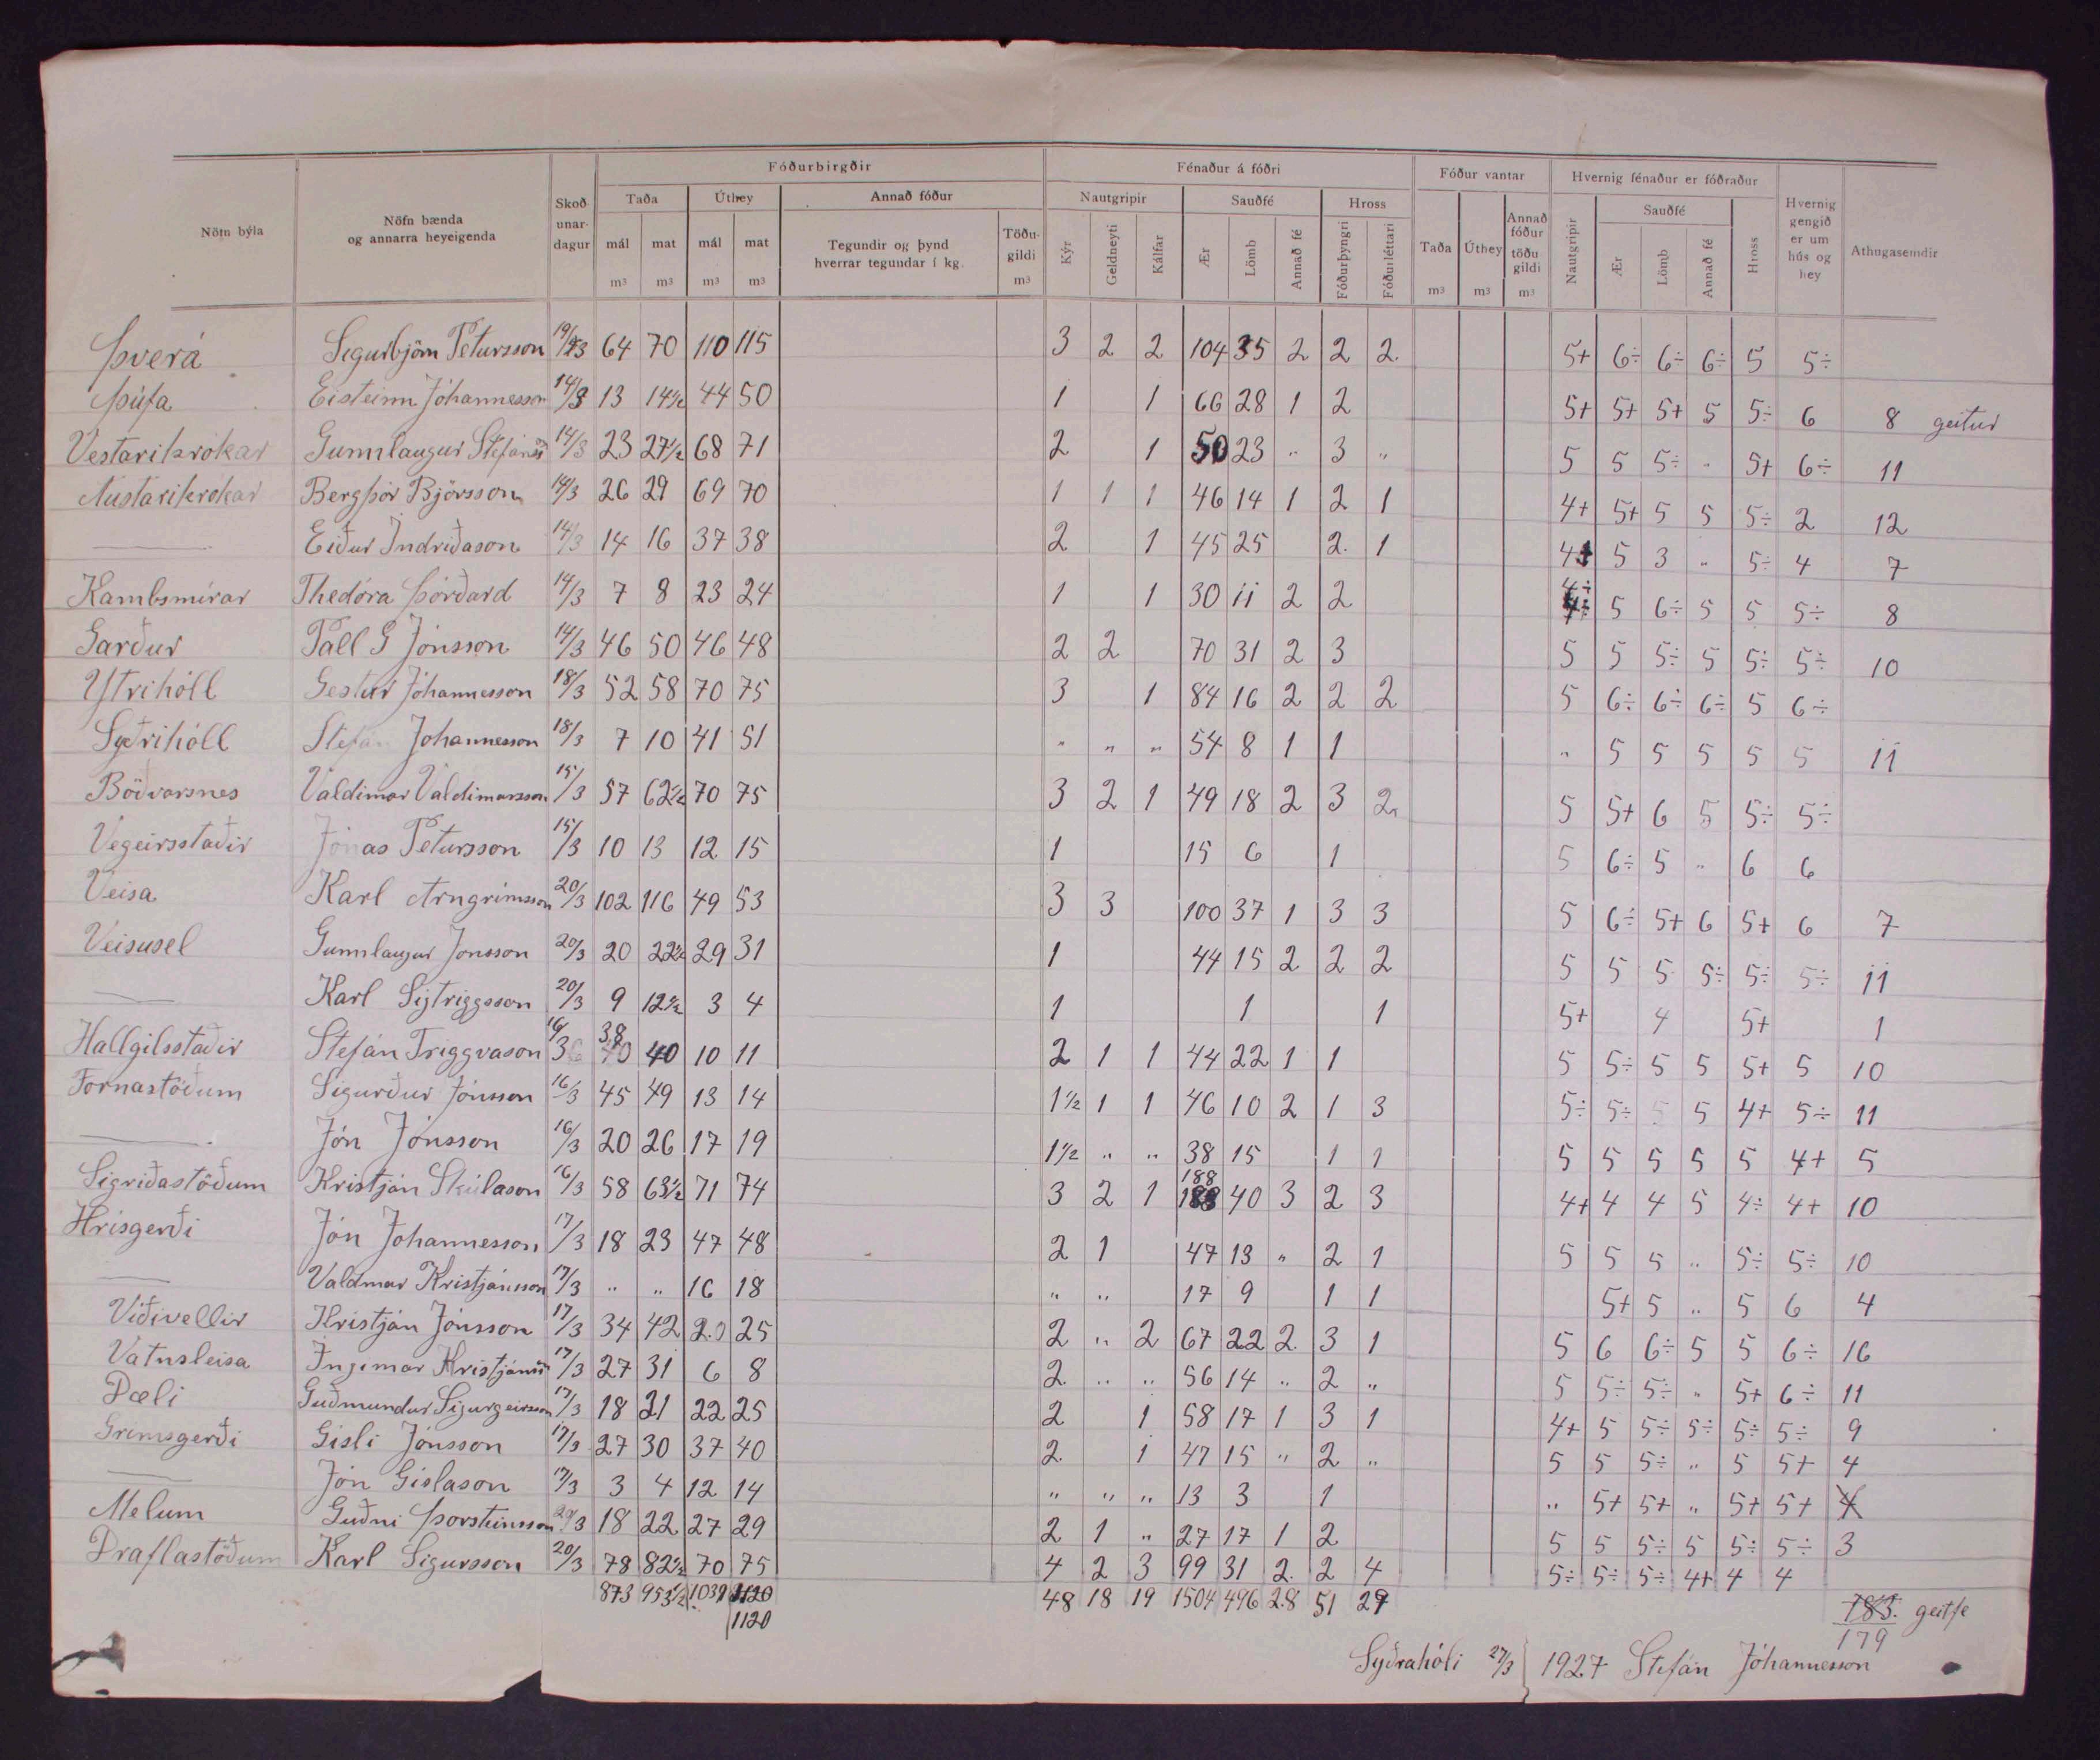 Fóðurbirgðir Fénaður á fóðri Fóður vantar Hvernig fénaður er fóðraður
Nöfn býla Nöfn bænda og annarra heyeigenda Skoðunardagur Taða Úthey Annað fóður Nautgripir Sauðfé Hross Taða Úthey Annað fóður töðu gildi Nautgripir Sauðfé Hross Hvernig gengið er um hús og hey Athugasemdir
mál mat mál mat Tegundir og þynd hverrar tegundar í kg. Töðugildi Kýr Geldneyti Kálfar Ær Lömb Annað fé Fóðurþyngri Fóðurléttari Ær Lömb Annað fé
m³ m³ m³ m³ m³ m³ m³ m³
Þverá Sigurbjörn Petursson 19/3 64 70 110 115 3 2 2 104 35 2 2 2 5+ 6÷ 6÷ 6÷ 5 5÷
Þúfa Eisteinn Jóhannesson 14/3 13 14½ 44 50 1 1 66 28 1 2 5+ 5+ 5+ 5 5÷ 6 8 geitur
Vestarikrokar Gunnlaugur Stefánss 14/3 23 27½ 68 71 2 1 50 23 " 3 " 5 5 5÷ " 5+ 6÷ 11
Austarikrokar Bergþór Björsson 14/3 26 29 69 70 1 1 1 46 14 1 2 1 4+ 5+ 5 5 5÷ 2 12
—— Eiður Indriðason 14/3 14 16 37 38 2 1 45 25 2 1 4+ 5 3 " 5÷ 4 7
Kambsmírar Thedóra Þórðard 14/3 7 8 23 24 1 1 30 11 2 2 4÷ 5 6÷ 5 5 5÷ 8
Garður Páll G Jónsson 14/3 46 50 46 48 2 2 70 31 2 3 5 5 5÷ 5 5÷ 5÷ 10
Ytrihóll Gestur Jóhannesson 18/3 52 58 70 75 3 1 84 16 2 2 2 5 6÷ 6÷ 6÷ 5 6÷
Syðrihóll Stefán Johannesson 18/3 7 10 41 51 " " " 54 8 1 1 " 5 5 5 5 5 11
Böðvarsnes Valdimar Valdimarsson 15/3 57 62½ 70 75 3 2 1 49 18 2 3 2 5 5+ 6 5 5÷ 5÷
Vegeirsstaðir Jónas Petursson 15/3 10 13 12 15 1 15 6 1 5 6÷ 5 " 6 6
Veisa Karl Arngrímsson 20/3 102 116 49 53 3 3 100 37 1 3 3 5 6÷ 5+ 6 5+ 6 7
Veisusel Gunnlaugur Jonsson 20/3 20 22½ 29 31 1 44 15 2 2 2 5 5 5 5÷ 5÷ 5÷ 11
—— Karl Sigtriggsson 20/3 9 12½ 3 4 1 1 1 5+ 4 5+ 1
Hallgilsstaðir Stefán Triggvason 16/3 38 40 10 11 2 1 1 44 22 1 1 5 5÷ 5 5 5+ 5 10
Fornastöðum Sigurður Jónsson 16/3 45 49 13 14 1½ 1 1 46 10 2 1 3 5÷ 5÷ 5 5 4+ 5÷ 11
—— Jón Jónsson 16/3 20 26 17 19 1½ " " 38 15 1 1 5 5 5 5 5 4+ 5
Sigriðastöðum Kristján Skúlason 16/3 58 63½ 71 74 3 2 1 188 40 3 2 3 4+ 4 4 5 4÷ 4+ 10
Hrisgerði Jón Johannesson 17/3 18 23 47 48 2 1 47 13 " 2 1 5 5 5 " 5÷ 5÷ 10
—— Valdmar Kristjánsson 17/3 " " 16 18 " " 17 9 1 1 5+ 5 " 5 6 4
Víðivellir Kristján Jónsson 17/3 34 42 20 25 2 " 2 67 22 2 3 1 5 6 6÷ 5 5 6÷ 16
Vatnsleisa Ingimar Kristjánss 17/3 27 31 6 8 2 " " 56 14 " 2 " 5 5÷ 5÷ " 5+ 6÷ 11
Dæli Guðmundur Sigurgeirsson 17/3 18 21 22 25 2 1 58 17 1 3 1 4+ 5 5÷ 5÷ 5÷ 5÷ 9
Grimsgerði Gisli Jónsson 17/3 27 30 37 40 2 1 47 15 " 2 " 5 5 5÷ " 5 5+ 4
—— Jón Gislason 17/3 3 4 12 14 " " " 13 3 1 " 5+ 5+ " 5+ 5+ 4
Melum Guðni Þorsteinsson 20/3 18 22 27 29 2 1 " 27 17 1 2 5 5 5÷ 5 5÷ 5÷ 3
Draflastöðum Karl Sigursson 20/3 78 82½ 70 75 4 2 3 99 31 2 2 4 5÷ 5÷ 5÷ 4+ 4 4
873 953½ 1039 1120 48 18 19 1504 496 28 51 29 183. geitfe
1120 179
Syðrahóli 27/3 1927 Stefán Jóhannesson